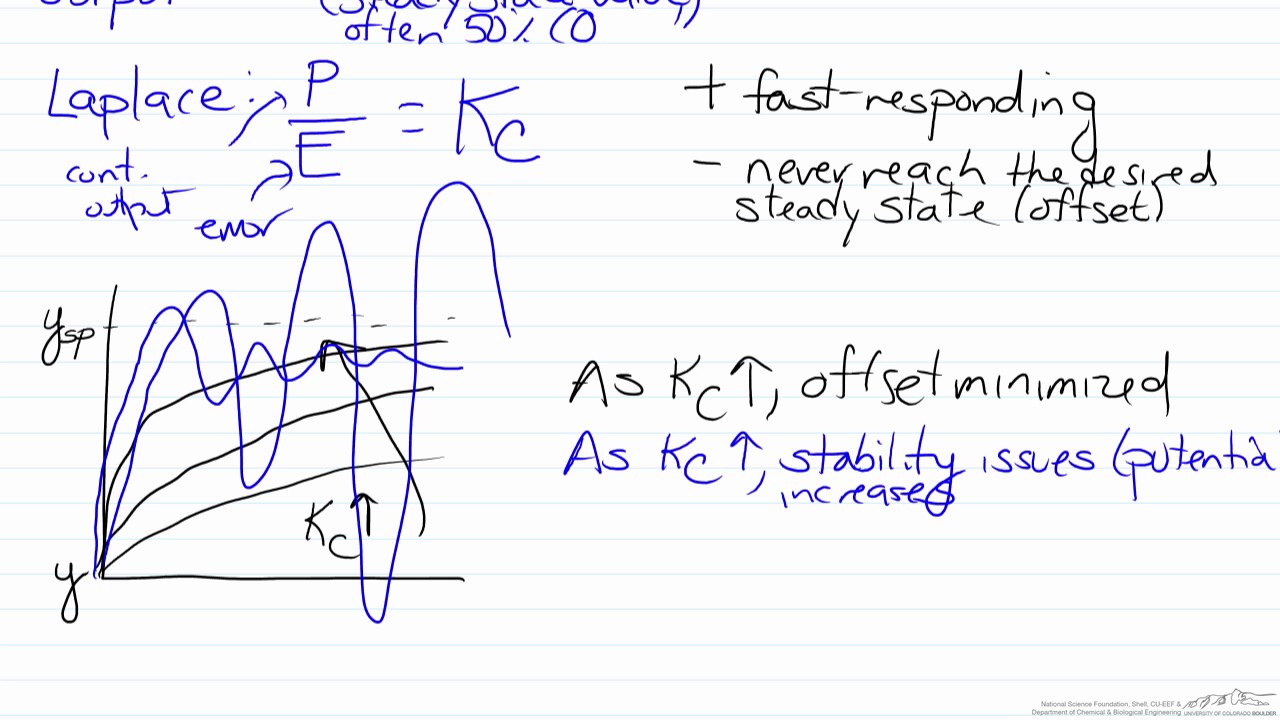 often 50% CO
Laplace: P/E = Kc
cont.
output
error
+ fast-responding
- never reach the desired
steady state (offset)
ysp
As Kc↑, offset minimized
As Kc↑, stability issues (potential
increases
Kc↑
y
National Science Foundation, Shell, CU-EEF &
Department of Chemical & Biological Engineering UNIVERSITY OF COLORADO BOULDER